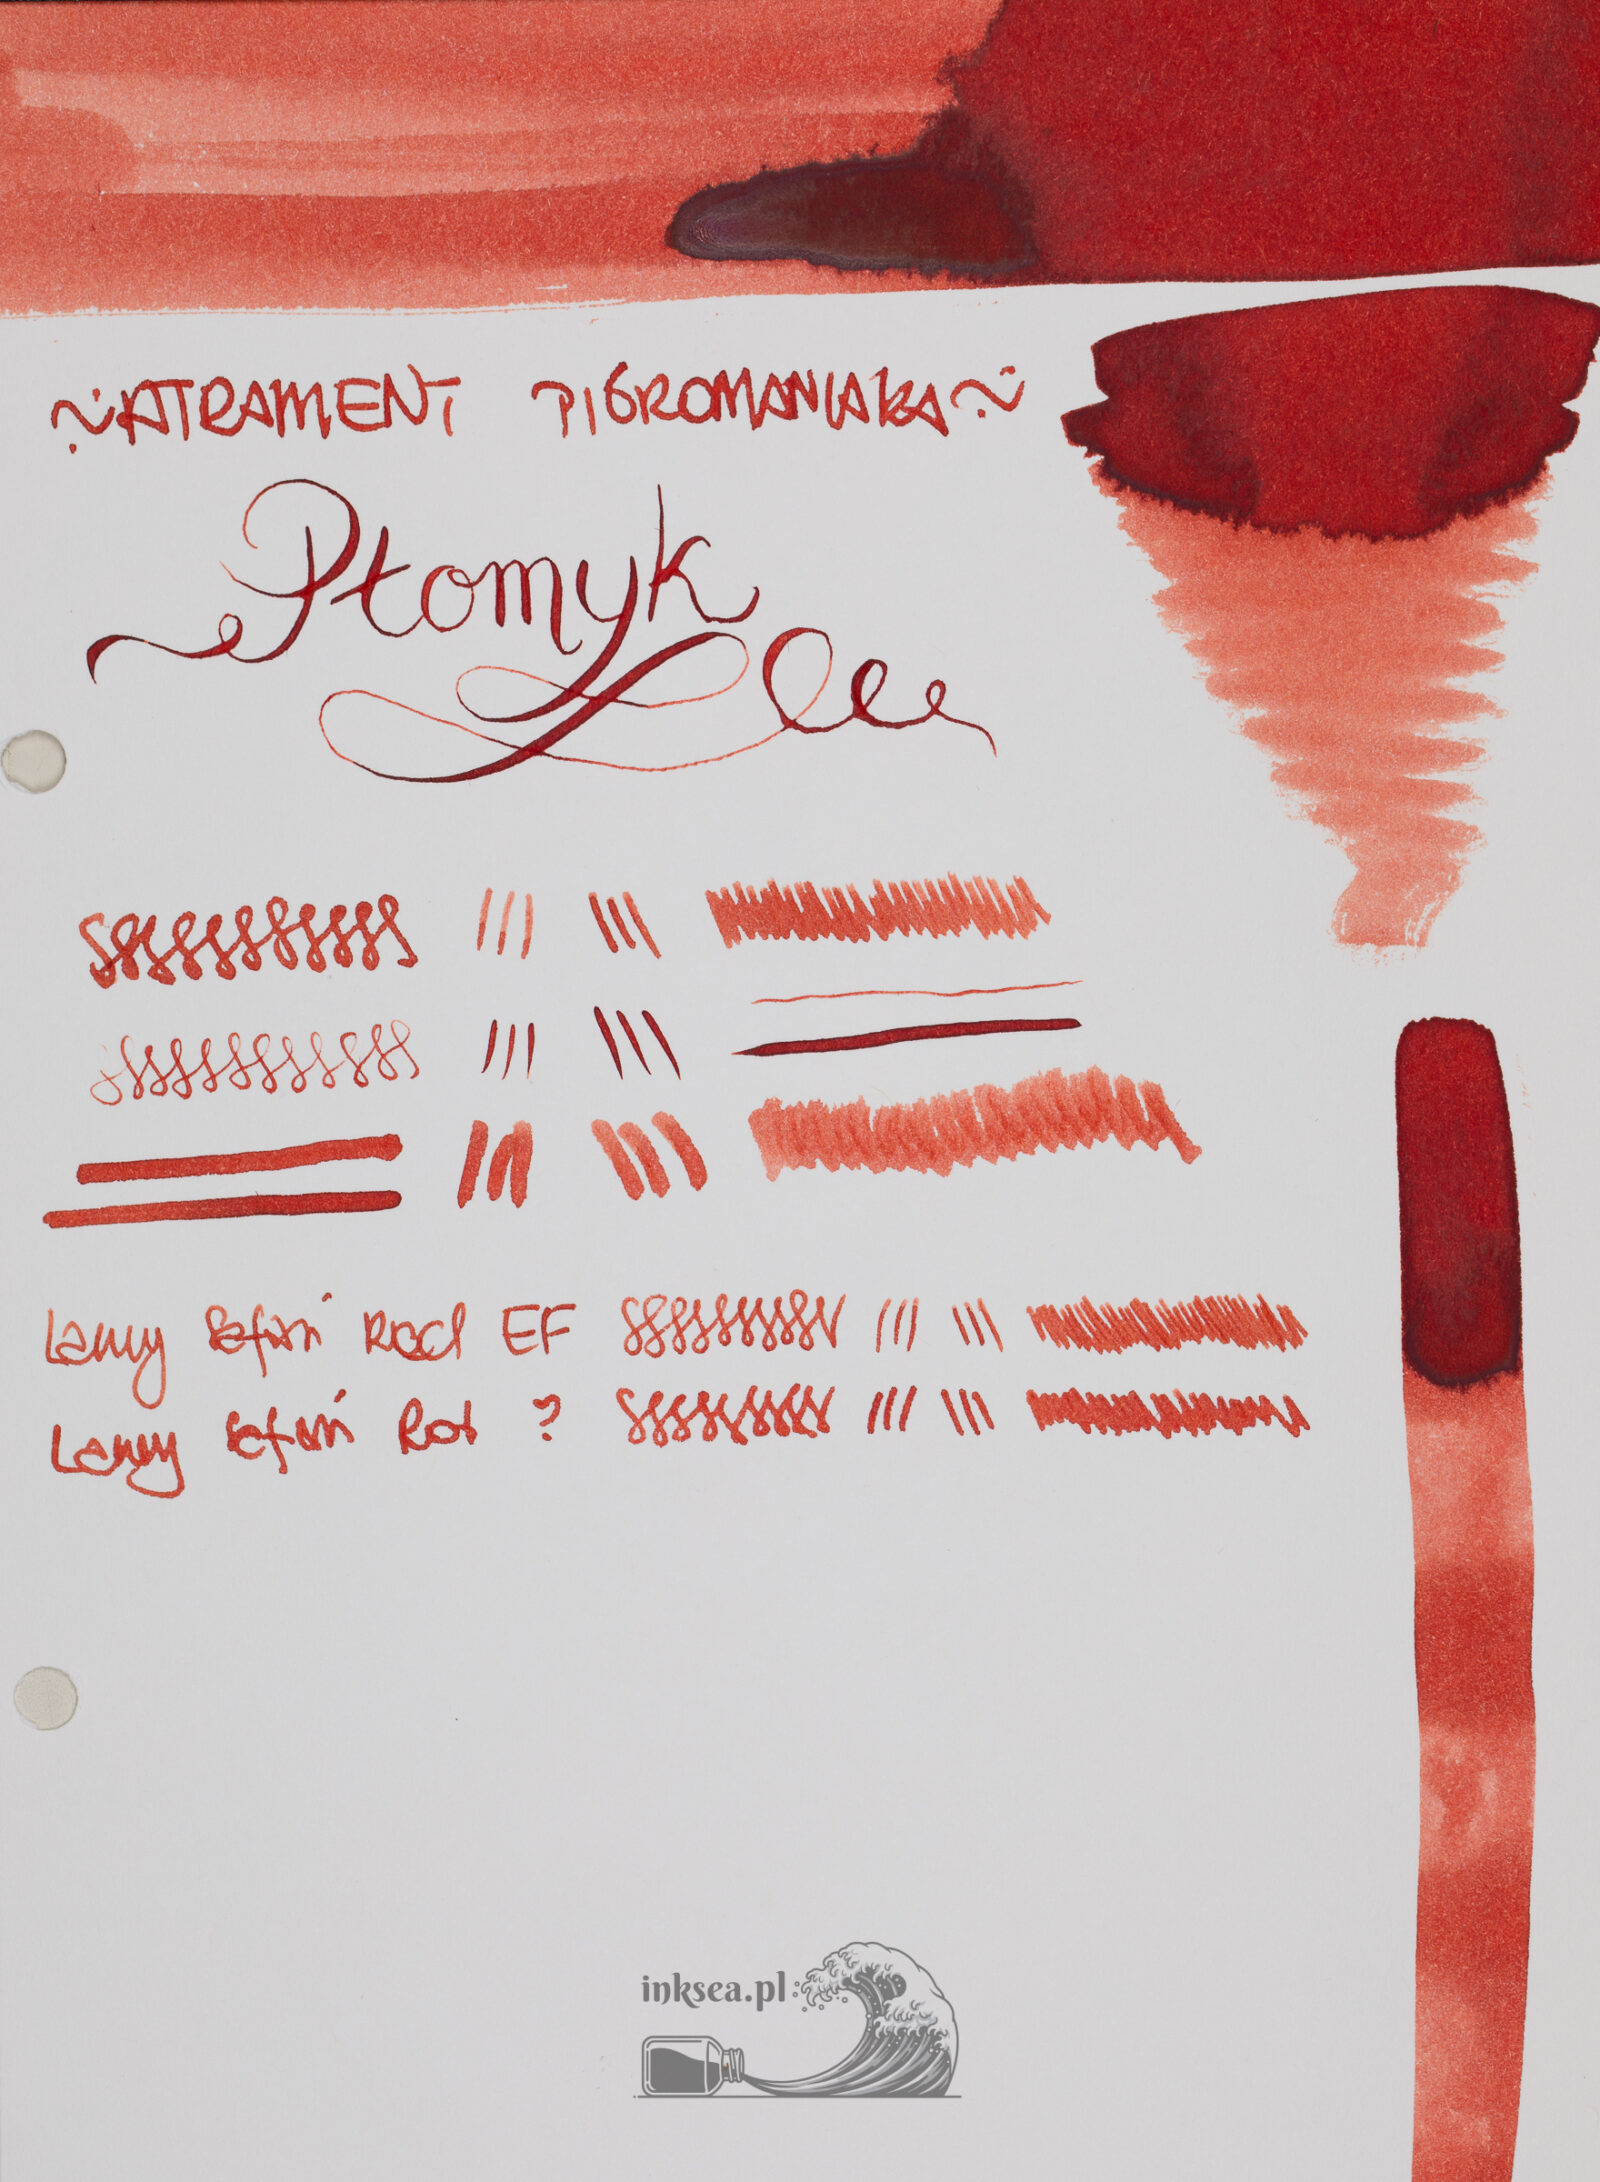 ~ATRAMENT PIÓROMANIAKA~
Płomyk
Lamy Safari Red EF
Lamy Safari Rot ?
inksea.pl